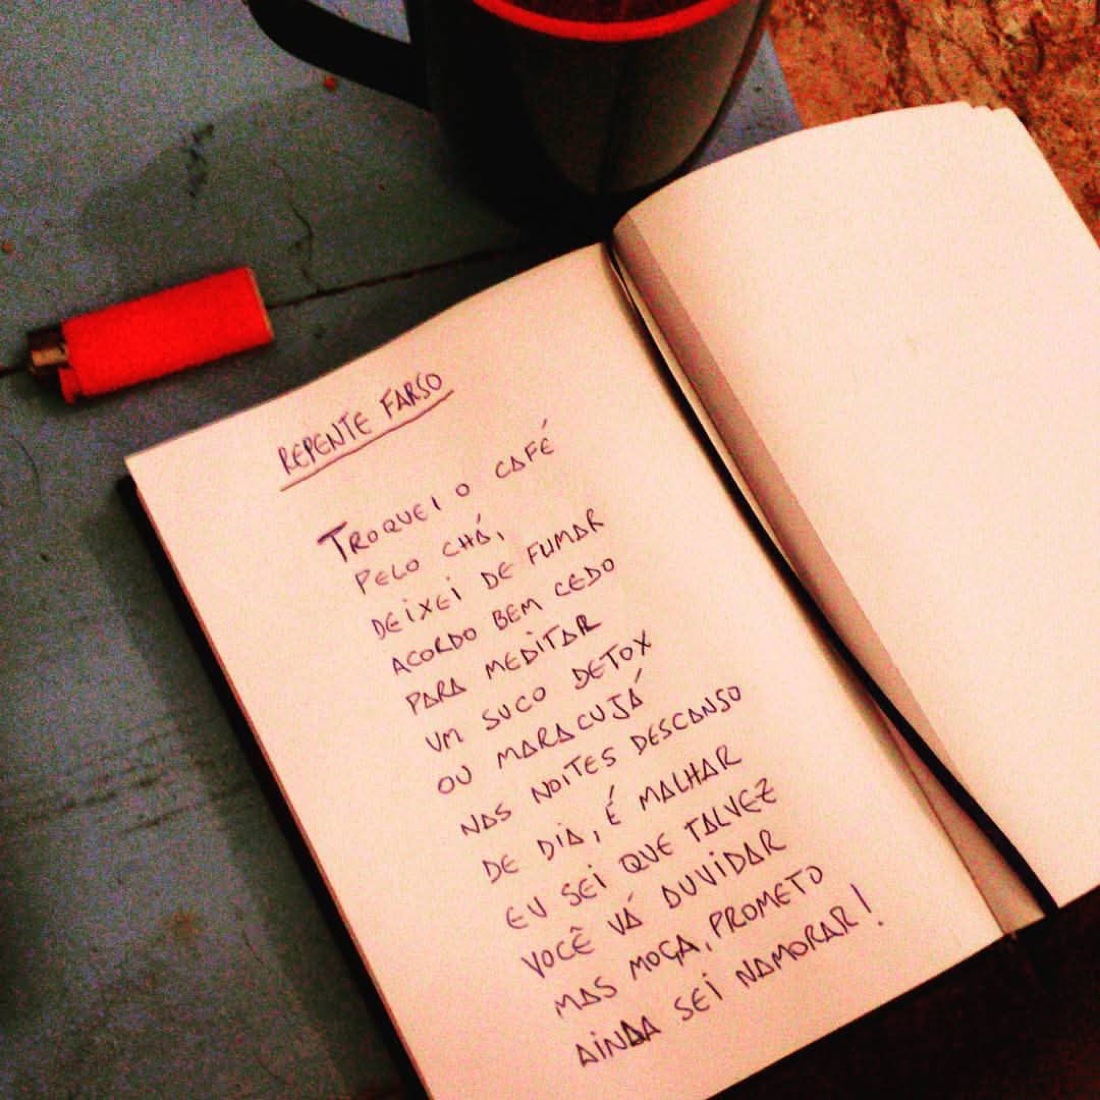 REPENTE FARSO
TROQUEI O CAFÉ
PELO CHÁ,
DEIXEI DE FUMAR
ACORDO BEM CEDO
PARA MEDITAR
UM SUCO DETOX
OU MARACUJÁ
NAS NOITES DESCANSO
DE DIA, É MALHAR
EU SEI QUE TALVEZ
VOCÊ VÁ DUVIDAR
MAS MOÇA, PROMETO
AINDA SEI NAMORAR!